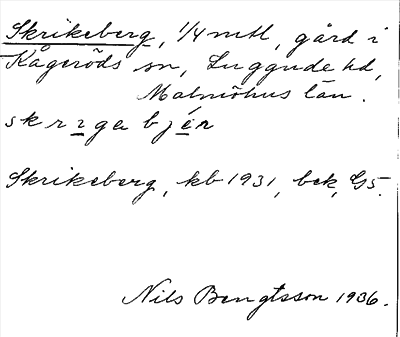 Skrikeberg, 1/4 mtl, gård i
Kågeröds sn, Luggude hd,
Malmöhus län.
skrɪgabjér
Skrikeberg, kb 1931, bek, G5.
Nils Bengtsson 1936.